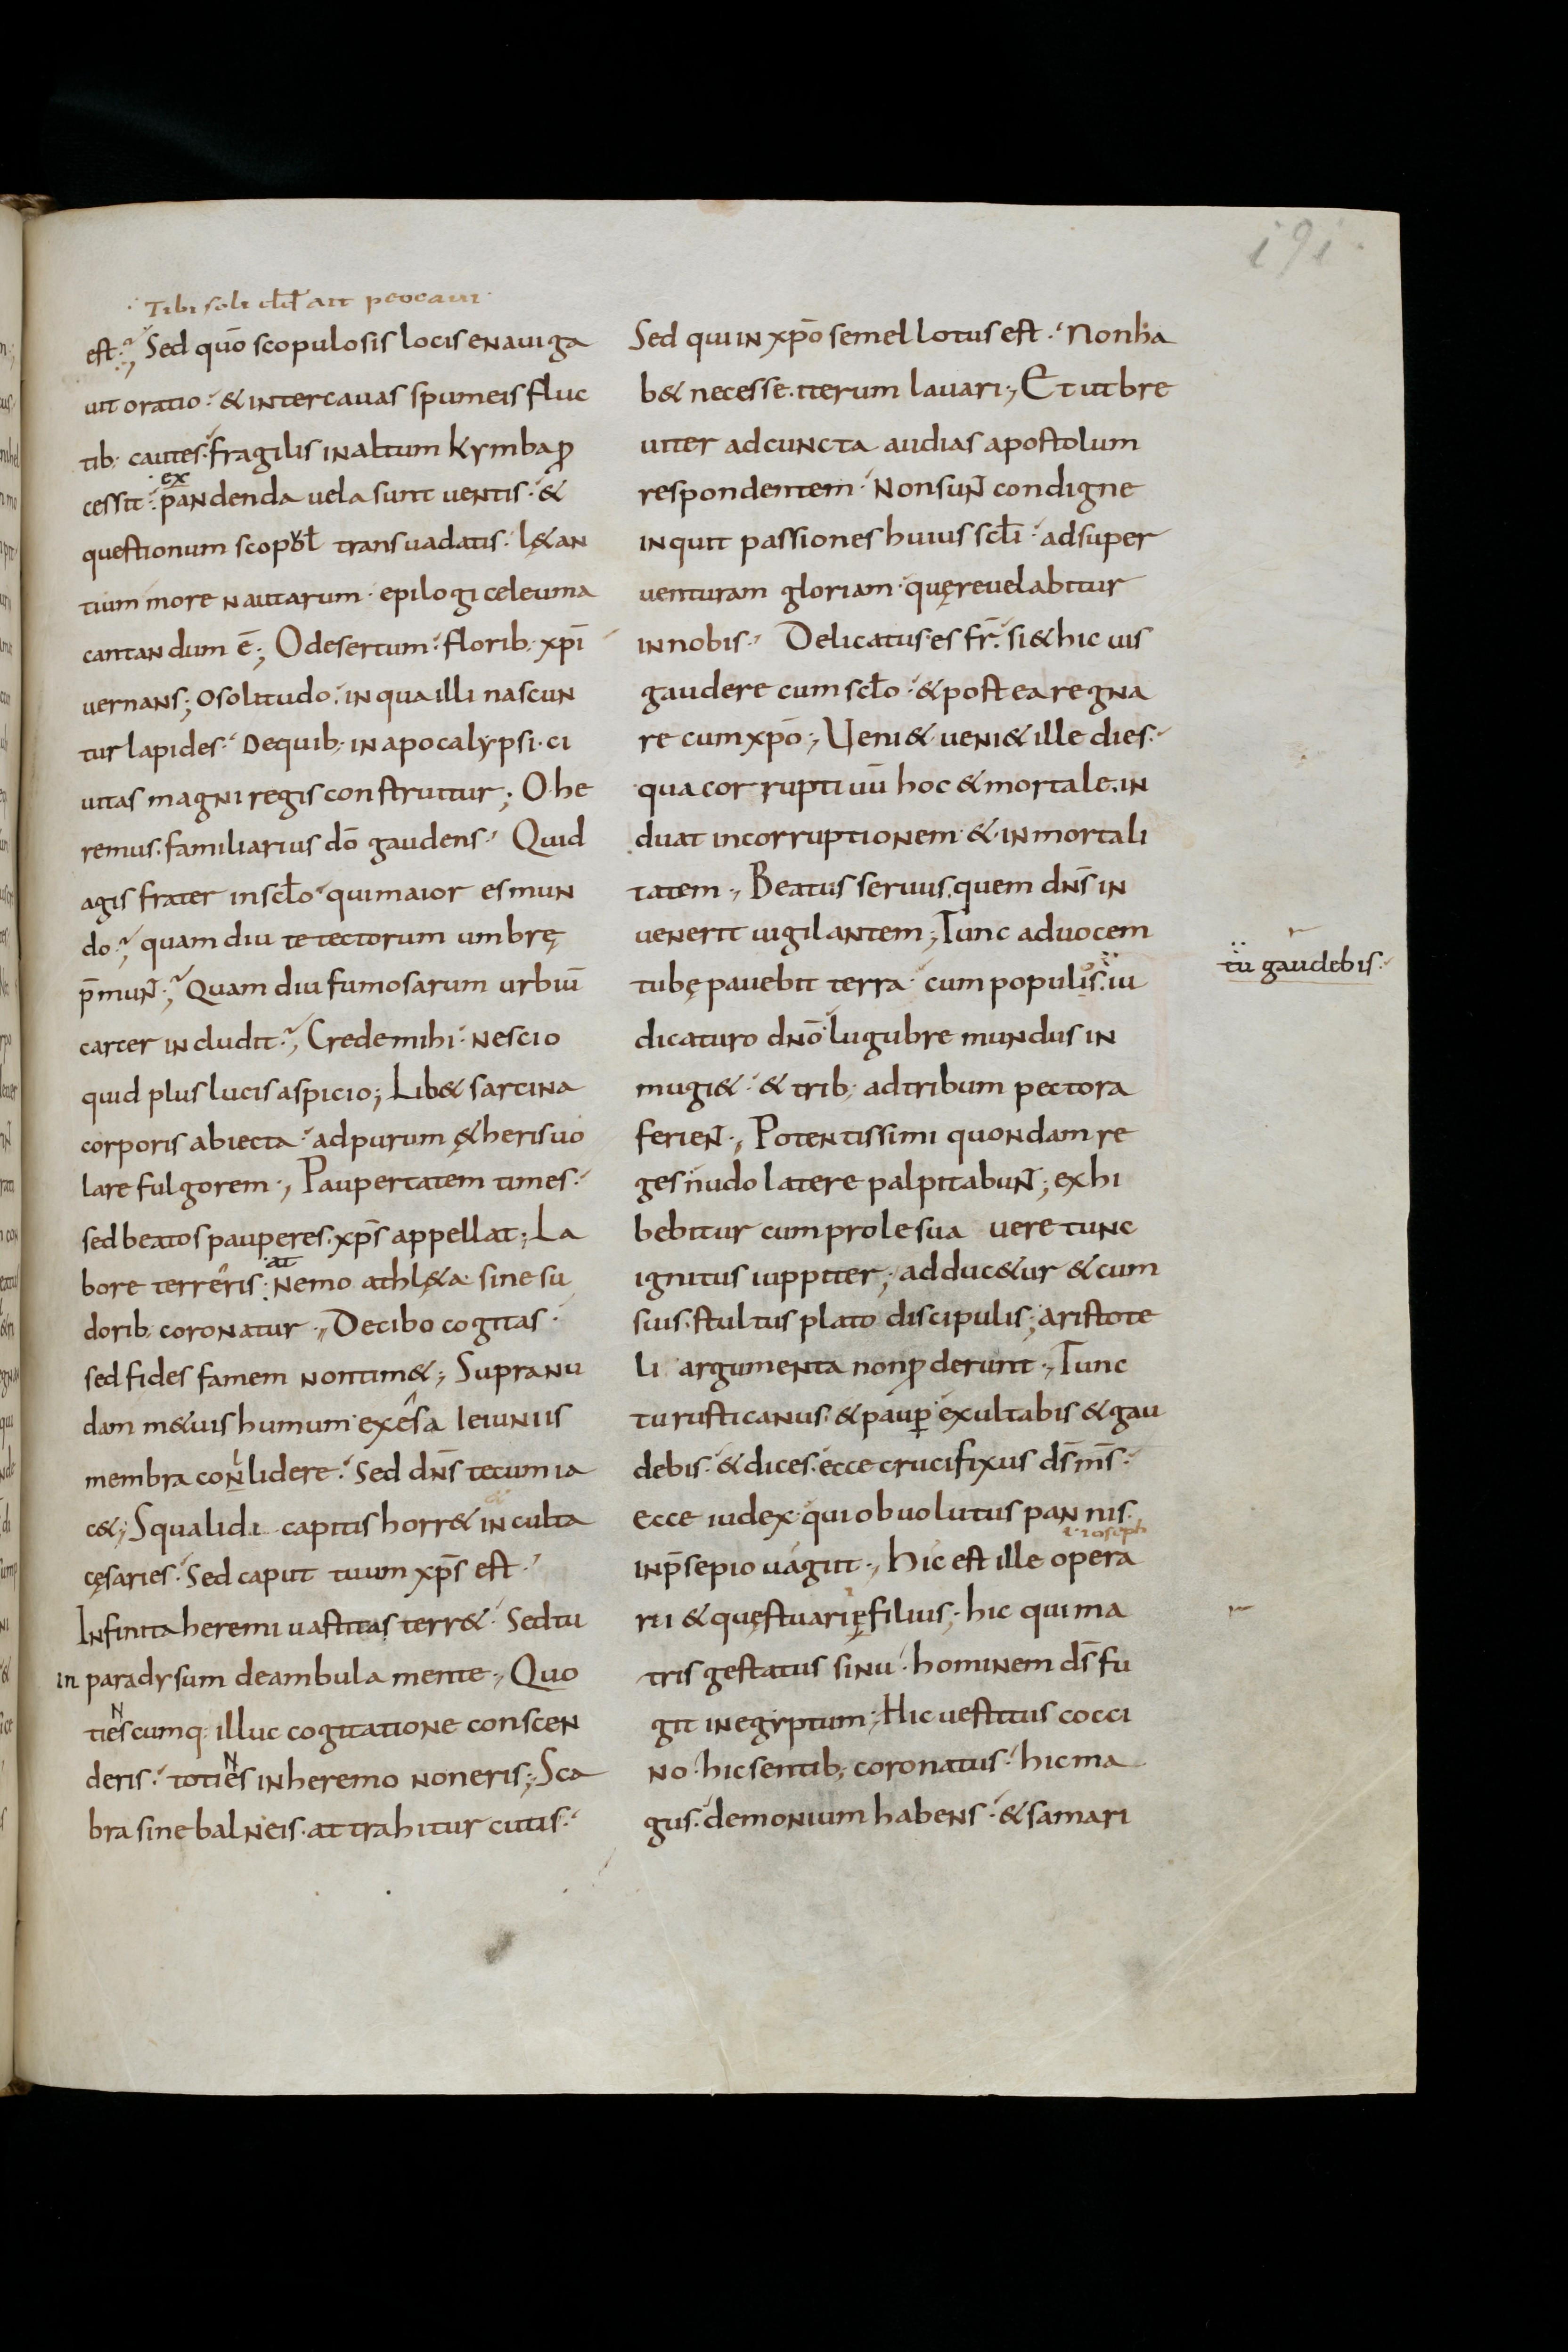 191
Tibi soli dd̄ ait peccaui
est; Sed quō scopulosis locis enauiga
uit oratio· & inter cauas spumeis fluc
tib; cautes· fragilis in altum kymba ꝓ
ex
cessit· pandenda uela sunt uentis· &
questionum scopul̄ transuadatis· lę&an
tium more nautarum· epilogi celeuma
cantandum ē; O desertum· florib; xp̄i
uernans; O solitudo· in qua illi nascun
tur lapides· De quib; in apocalypsi· ci
uitas magni regis construitur; O he
remus· familiarius dō gaudens· Quid
agis frater in scl̄o· qui maior es mun
do; quam diu te tectorum umbrę
p̄muÑ; Quam diu fumosarum urbiū
carcer includit; Crede mihi· nescio
quid plus lucis aspicio; Lib& sarcina
corporis abiecta· ad purum ę&heris uo
lare fulgorem; Paupertatem times·
sed beatos pauperes· xp̄s appellat; La
at
bore terreris· Nemo athlę&a sine su
dorib; coronatur; De cibo cogitas·
sed fides famem non tim&; Supra nu
dam m&uis humum exesa ieiuniis
membra conlidere· Sed dn̄s tecum ia
c&; Squalidi capitis horr& inculta
cęsaries· Sed caput tuum xp̄s est·
Infinita heremi uastitas terr&· Sed tu
in paradysum deambula mente; Quo
N
tiescumq; illuc cogitatione conscen
N
deris· toties in heremo non eris; Sca
bra sine balneis· attrahitur cutis·
Sed qui in xp̄o semel lotus est· Non ha
b& necesse· iterum lauari; Et ut bre
uiter ad cuncta audias apostolum
respondentem· Non suÑ condigne
inquit passiones huius scl̄i· ad super
uenturam gloriam· quę reuelabitur
in nobis· Delicatus es fr̄· si & hic uis
gaudere cum scl̄o· & postea regna
re cum xp̄o; Ueni& ueni& ille dies·
qua corruptiuū hoc & mortale· in
duat incorruptionem· & inmortali
tatem; Beatus seruus· quem dn̄s in
uenerit uigilantem; Tunc ad uocem
tubę pauebit terra· cum populis· iu
tu gaudebis·
dicaturo dn̄o· lugubre mundus in
mugi&· & trib; ad tribum pectora
ferieÑ; Potentissimi quondam re
ges nudo latere palpitabuÑ; exhi
bebitur cum prole sua uere tunc
ignitus iuppiter; adduc&ur & cum
suis· stultus plato discipulis; aristote
li argumenta non ꝓderunt; Tunc
tu rusticanus· & paup̱ exultabis & gau
debis· & dices· ecce crucifixus ds̄ ms̄·
ecce iudex· qui obuolutus pannis·
i· ioseph
in p̄sepio uagiit; Hic est ille opera
rii & quęstuarię filius; hic qui ma
tris gestatus sinu· hominem ds̄ fu
git in egyptum; Hic uestitus cocci
no· hic sentib; coronatus· hic ma
gus· demonium habens· & samari